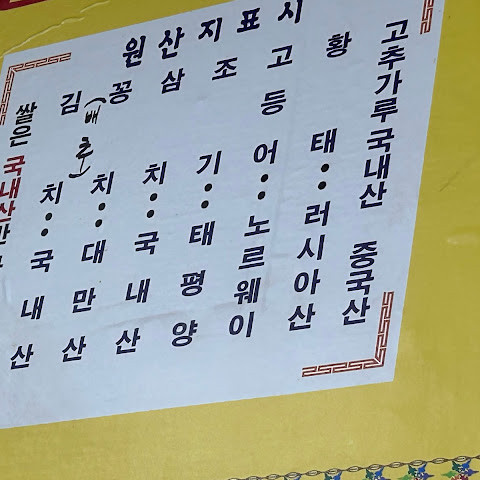 원산지표시
고추가루 국내산 중국산
황태··러시아산
고등어··노르웨이
조기··태평양
삼치··국내산
꽁치··대만산
김(배추)치··국내산
쌀은 국내산만